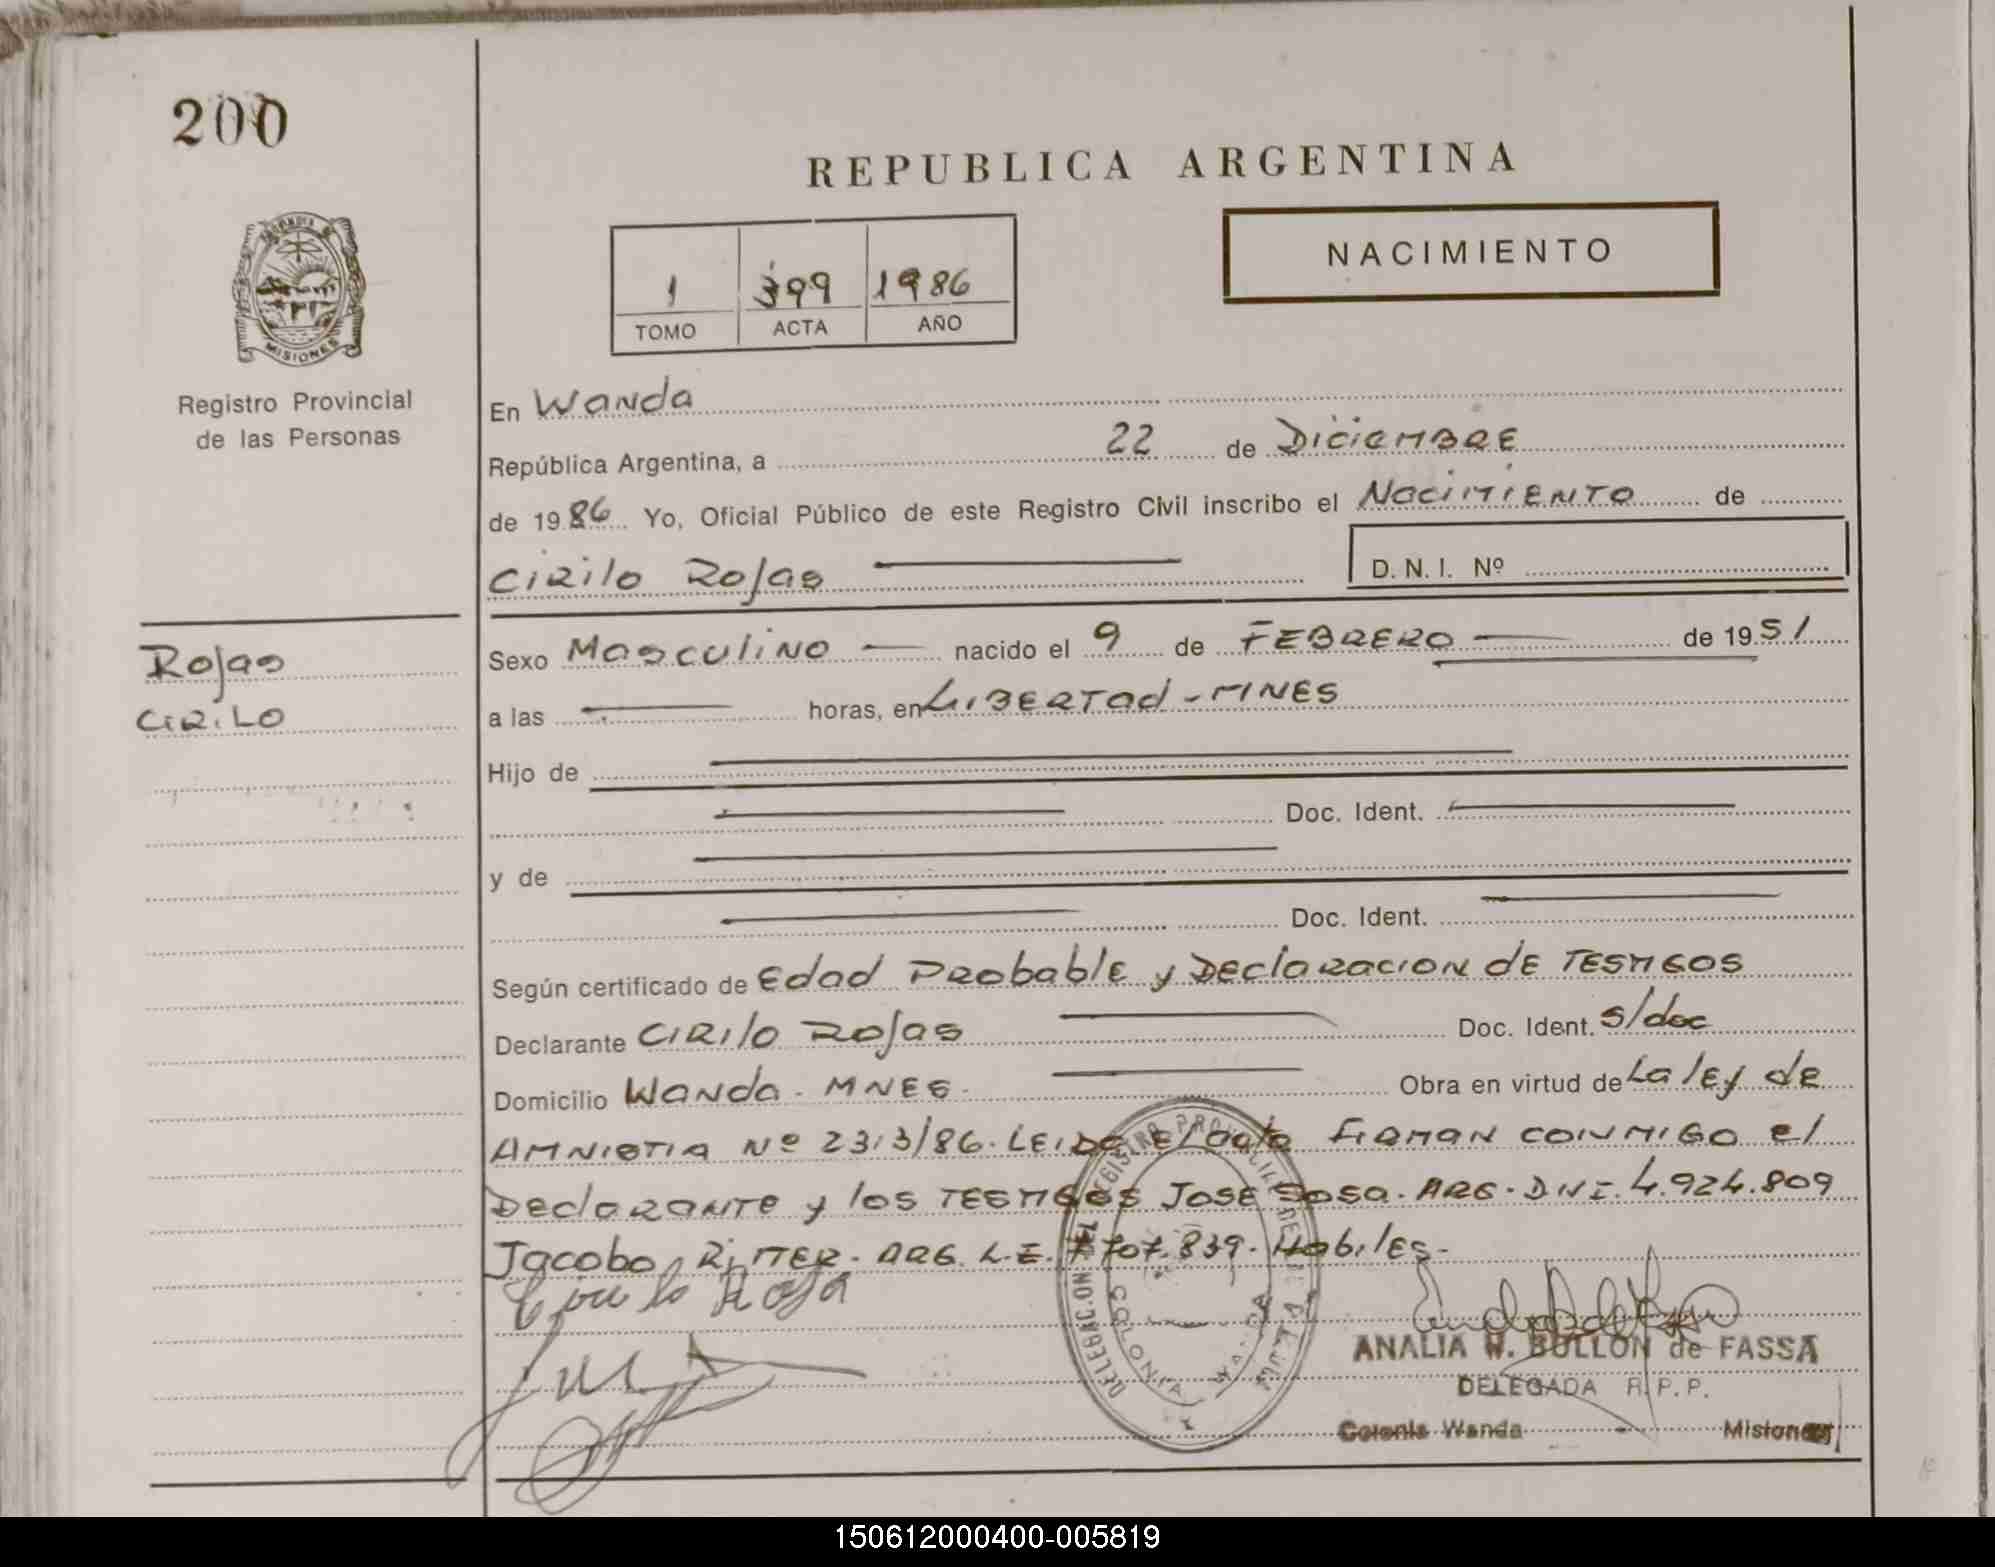 200
REPUBLICA ARGENTINA
NACIMIENTO
1 399 1986
TOMO ACTA AÑO
MISIONES
Registro Provincial
de las Personas
En Wanda
República Argentina, a 22 de Diciembre
de 1986 Yo, Oficial Público de este Registro Civil inscribo el Nacimiento de
Cirilo Rojas D. N. I. Nº
Rojas
Cirilo
Sexo Masculino nacido el 9 de FEBRERO de 1951
a las horas, en LIBERTad - MNES
Hijo de
Doc. Ident.
y de
Doc. Ident.
Según certificado de Edad Probable y Declaracion de TESTIGOS
Declarante Cirilo Rojas Doc. Ident. s/doc
Domicilio Wanda - MNES. Obra en virtud de La ley de
AMNISTIA Nº 2313/86. LEIDO El acta FIRMAN CONMIGO el
DeclaRANTE y los TESTIGOS JOSE SOSA. ARG. DNI. 4.924.809
Jacobo RITTER. ARG. L.E. 7707.839. Habiles.
Cirilo Roja
DELEGAC.ON REGISTRO PROVINCIAL DE LAS
COLONIA WANDA
ANALIA W. BULLON de FASSA
DELEGADA R.P.P.
Colonia Wanda Misiones
150612000400-005819